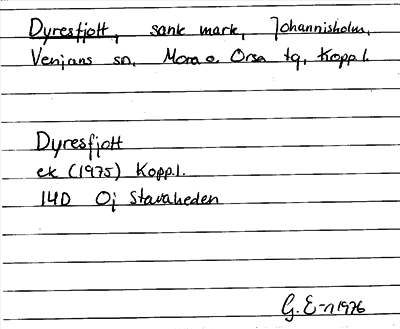 Dyresfjott, sank mark, Johannisholm,
Venjans sn, Mora o. Orsa tg, Kopp l.
Dyresfjott
ek (1975) Kopp.l.
14D 0j Stavaheden
G. E-n 1976